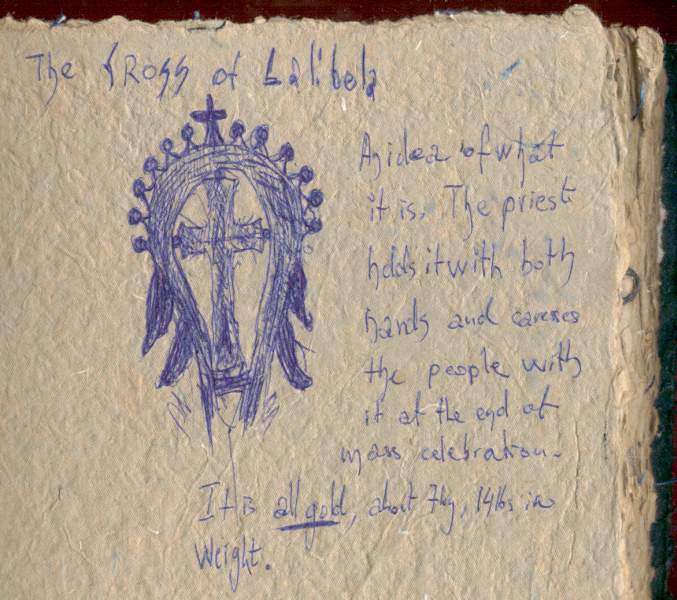 The CROSS of Lalibela
An idea of what
it is. The priest
holds it with both
hands and caresses
the people with
it at the end of
mass celebration.
It is all gold, about 7kg, 14lbs in
weight.